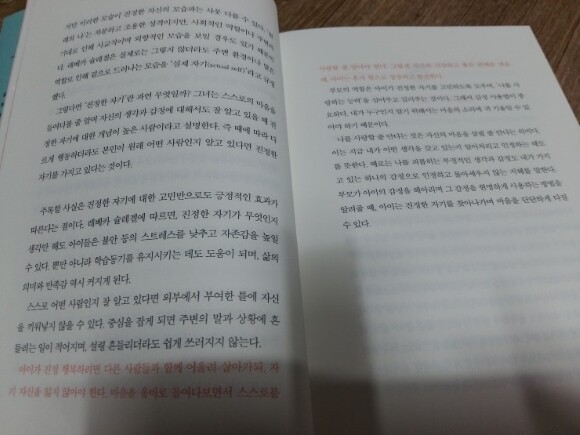 지만 이러한 모습이 진정한 자신의 모습과는 사뭇 다를 수 있다. 원
래의 나는 차분하고 조용한 성격이지만, 사회적인 역할이나 주변의
기대로 인해 사교적이며 외향적인 모습을 보일 경우도 있기 때문이
다. 레베카 슐레겔은 실제로는 그렇지 않더라도 주변 환경이나 맡은
역할로 인해 겉으로 드러나는 모습을 '실제 자기(actual self)'라고 규정
했다.
그렇다면 '진정한 자기'란 과연 무엇일까? 그녀는 스스로의 마음을
들여다볼 줄 알며 자신의 생각과 감정에 대해서도 잘 알고 있을 때 진
정한 자기에 대한 개념이 높은 사람이라고 설명한다. 즉 때에 따라 다
르게 행동하더라도 본인이 원래 어떤 사람인지 알고 있다면 진정한
자기를 가지고 있다는 것이다.
주목할 사실은 진정한 자기에 대한 고민만으로도 긍정적인 효과가
따른다는 점이다. 레베카 슐레겔에 따르면, 진정한 자기가 무엇인지
생각만 해도 아이들은 불안 등의 스트레스를 낮추고 자존감을 높일
수 있다. 뿐만 아니라 학습동기를 유지시키는 데도 도움이 되며, 삶의
의미와 만족감 역시 커지게 된다.
스스로 어떤 사람인지 잘 알고 있다면 외부에서 부여한 틀에 자신
을 끼워넣지 않을 수 있다. 중심을 잡게 되면 주변의 말과 상황에 흔
들리는 일이 적어지며, 설령 흔들리더라도 쉽게 쓰러지지 않는다.
아이가 진정 행복하려면 다른 사람들과 함께 어울려 살아가되, 자
기 자신을 잃지 않아야 한다. 마음을 올바로 들여다보면서 스스로를
사랑할 줄 알아야 한다. 그렇게 자신을
때, 아이는
부모의 역할은 아이가 진정한 자기를 고민하도록 도우며, '나를 사
랑하는 능력'을 심어주고 길러주는 것이다. 그래서 감정 사용법이 중
요하다. 내가 누구인지 알기 위해서는 마음의 소리에 귀 기울일 수 있
어야 하기 때문이다.
나를 사랑할 줄 안다는 것은 자신의 마음을 살필 줄 안다는 의미다.
이는 지금 내가 어떤 생각을 갖고 있는지 알아차리고 인정하는 태도
를 뜻한다. 때로는 나를 괴롭히는 부정적인 생각과 감정도 내가 가지
고 있는 하나의 감정으로 인정하고 돌아세우지 않는 지혜를 말한다.
부모가 아이의 감정을 헤아리며 그 감정을 현명하게 사용하는 방법을
알려줄 때, 아이는 진정한 자기를 찾아나가며 마음을 단단하게 다질
수 있다.